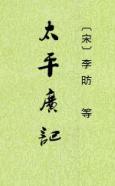 〔宋〕李昉 等
太平廣記